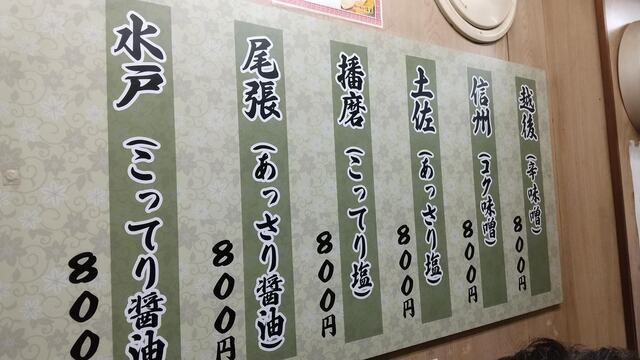 越後(辛味噌)
800円
信州(コク味噌)
800円
土佐(あっさり塩)
800円
播磨(こってり塩)
800円
尾張(あっさり醤油)
800円
水戸(こってり醤油
800